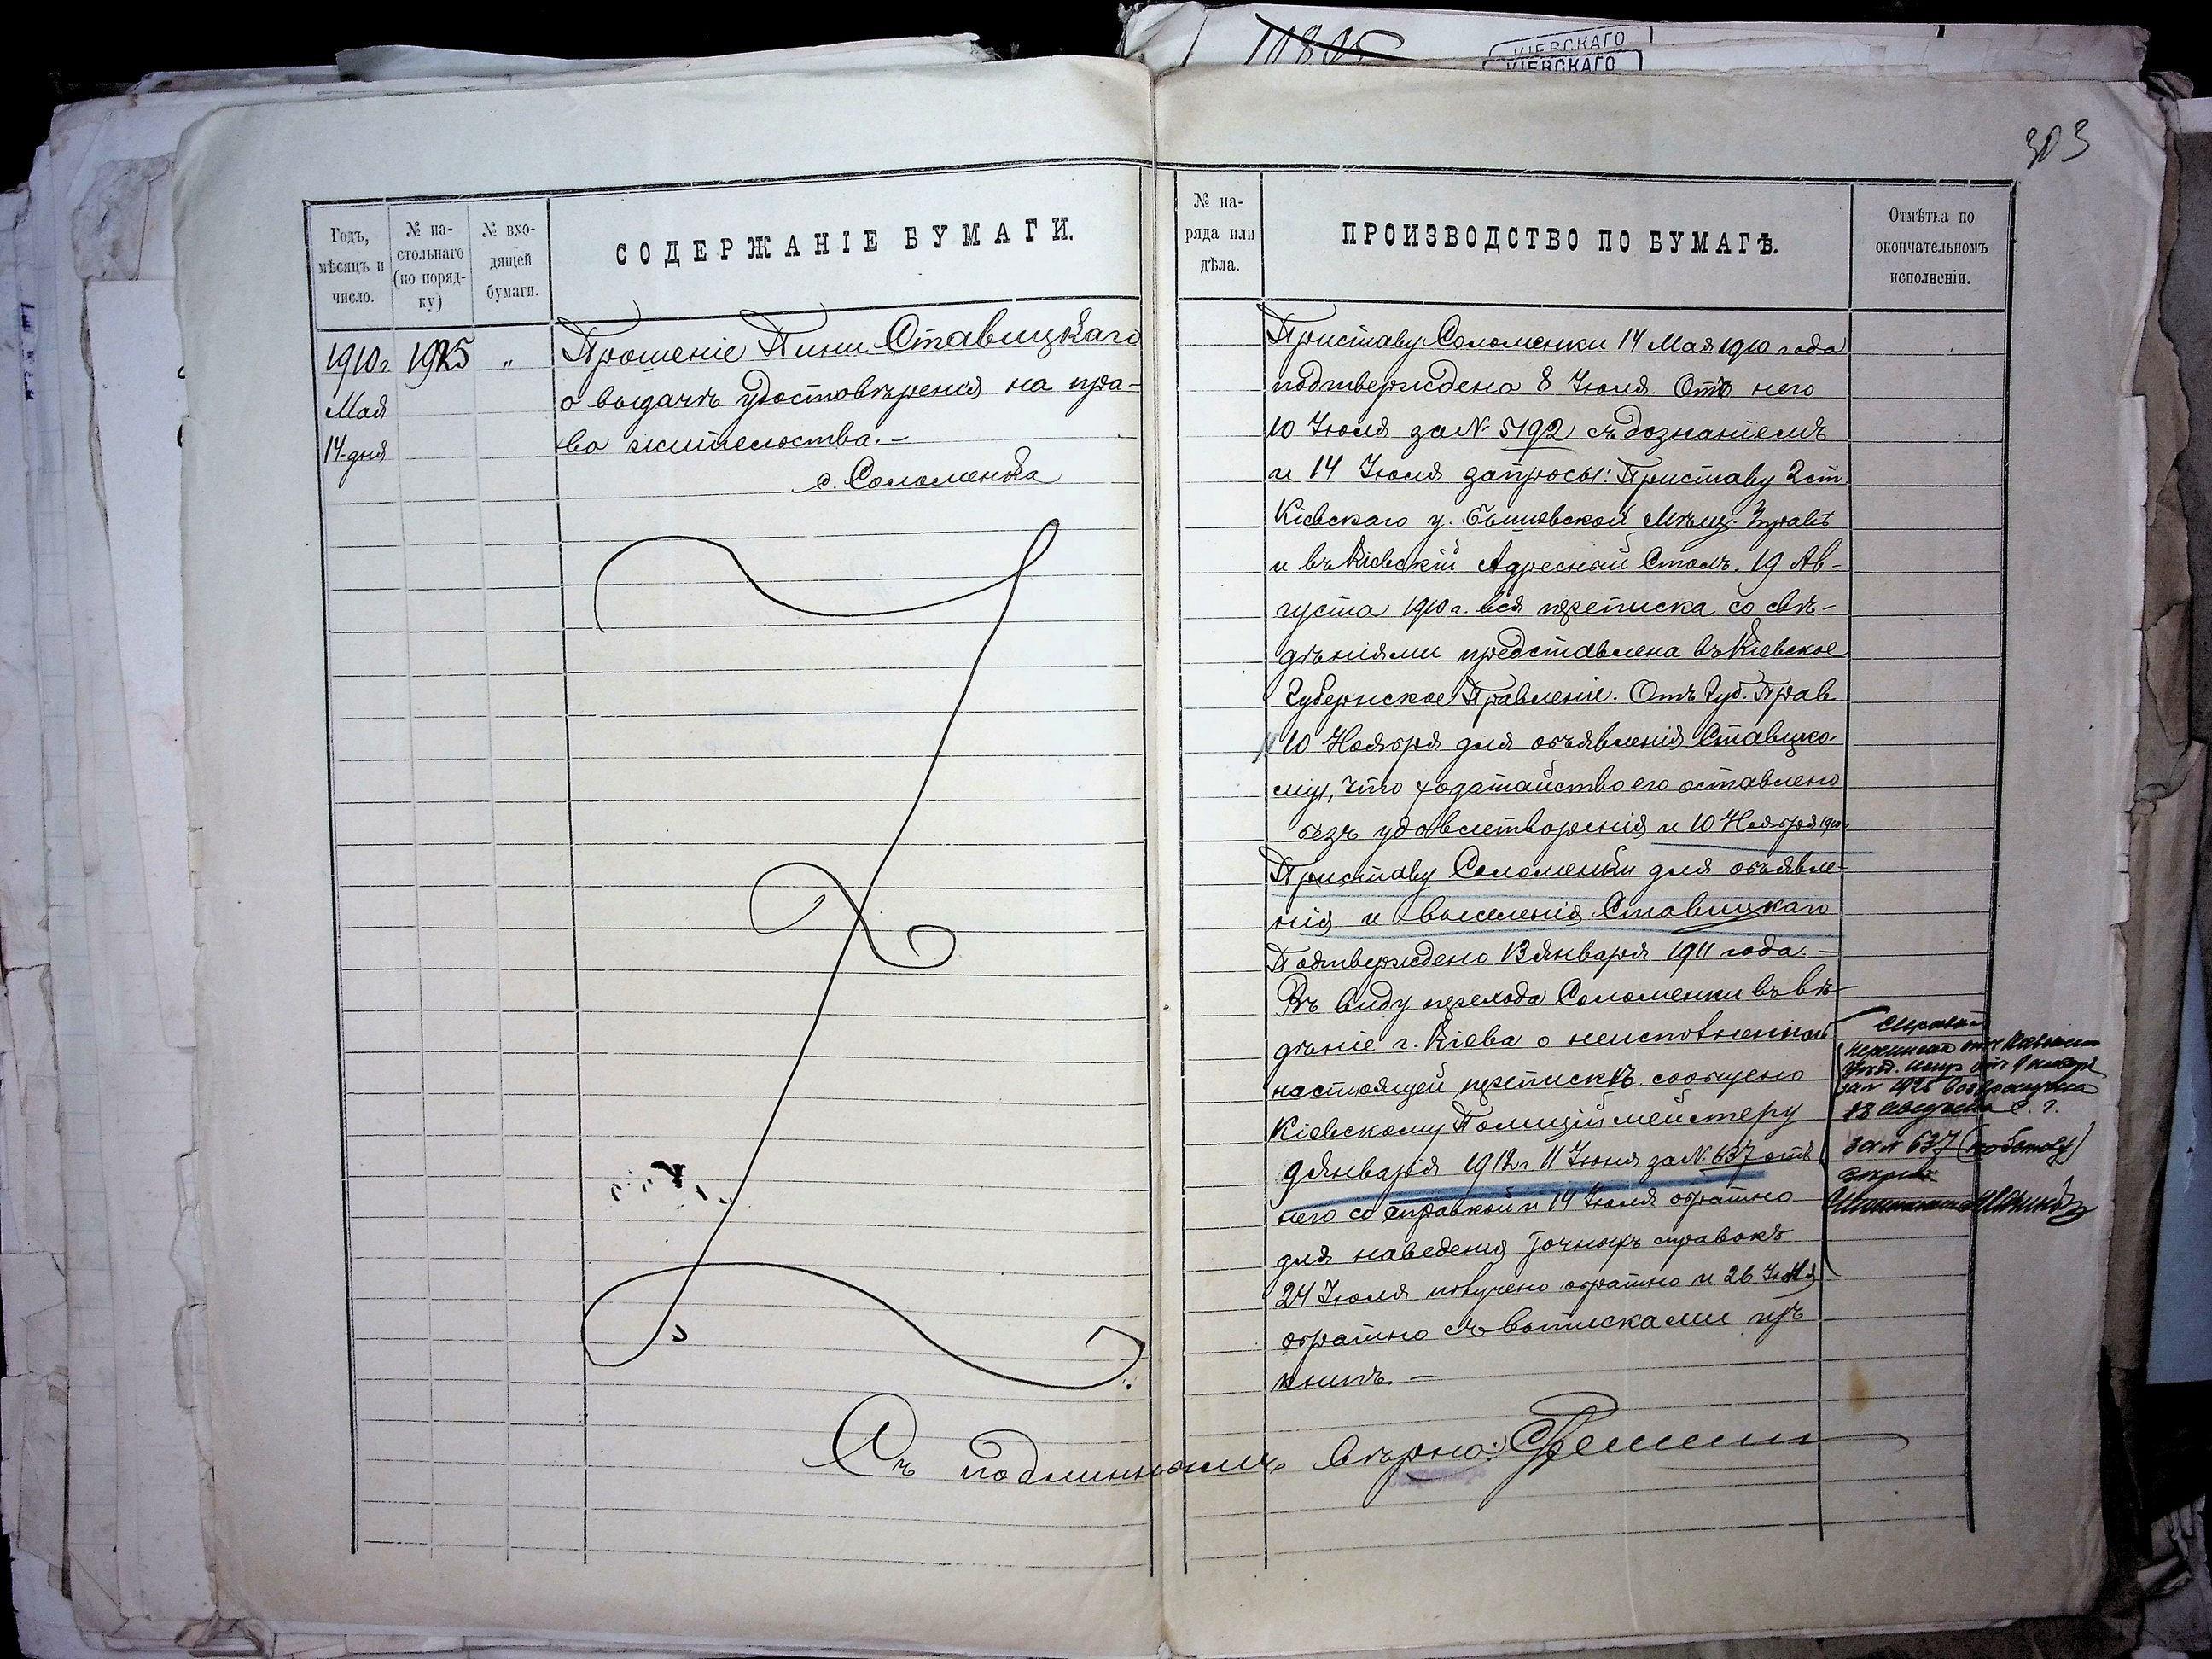 10805
КІЕВСКАГО
КІЕВСКАГО
303
Годъ,
мѣсяцъ и
число.
№ на-
стольнаго
(по поряд-
ку)
№ вхо-
дящей
бумаги.
СОДЕРЖАНІЕ БУМАГИ.
1910 г.
Мая
14 дня
1925
"
Прошеніе Пини Ставицкаго
о выдачѣ удостовѣренія на пра-
во жительства. –
с. Соломенка
№ на-
ряда или
дѣла.
ПРОИЗВОДСТВО ПО БУМАГѢ.
Отмѣтка по
окончательномъ
исполненіи.
Приставу Соломенки 14 Мая 1910 года
подтверждено 8 Іюля. Отъ него
10 Іюля за № 5192 съ дознаніемъ
и 14 Іюля запросы: Приставу 2 ст.
Кіевскаго у. Мѣщ. Управѣ
и въ Кіевскій Адресный Столъ. 19 Ав-
густа 1910 г. вся переписка со свѣ-
дѣніями представлена въ Кіевское
Губернское Правленіе. Отъ Губ. Прав.
10 Ноября для объявленія Ставицко-
му, что ходатайство его оставлено
безъ удовлетворенія и 10 Ноября 1910 г.
Приставу Соломенки для объявле-
нія и выселенія Ставицкаго
Подтверждено 13 Января 1911 года. –
Въ виду перехода Соломенки въ вѣ-
дѣніе г. Кіева о неисполненной
настоящей перепискѣ сообщено
Кіевскому Полиціймейстеру
9 Января 1912 г. 11 Іюня за № 637 отъ
него со справкой и 14 Іюля обратно
для наведенія точныхъ справокъ
24 Іюля получено обратно и 26 Іюля
обратно съ выписками изъ
книгъ. –
Справка
переписка
за № 1925 возвращена
18 Августа с. г.
за № 637
Съ подлиннымъ вѣрно: